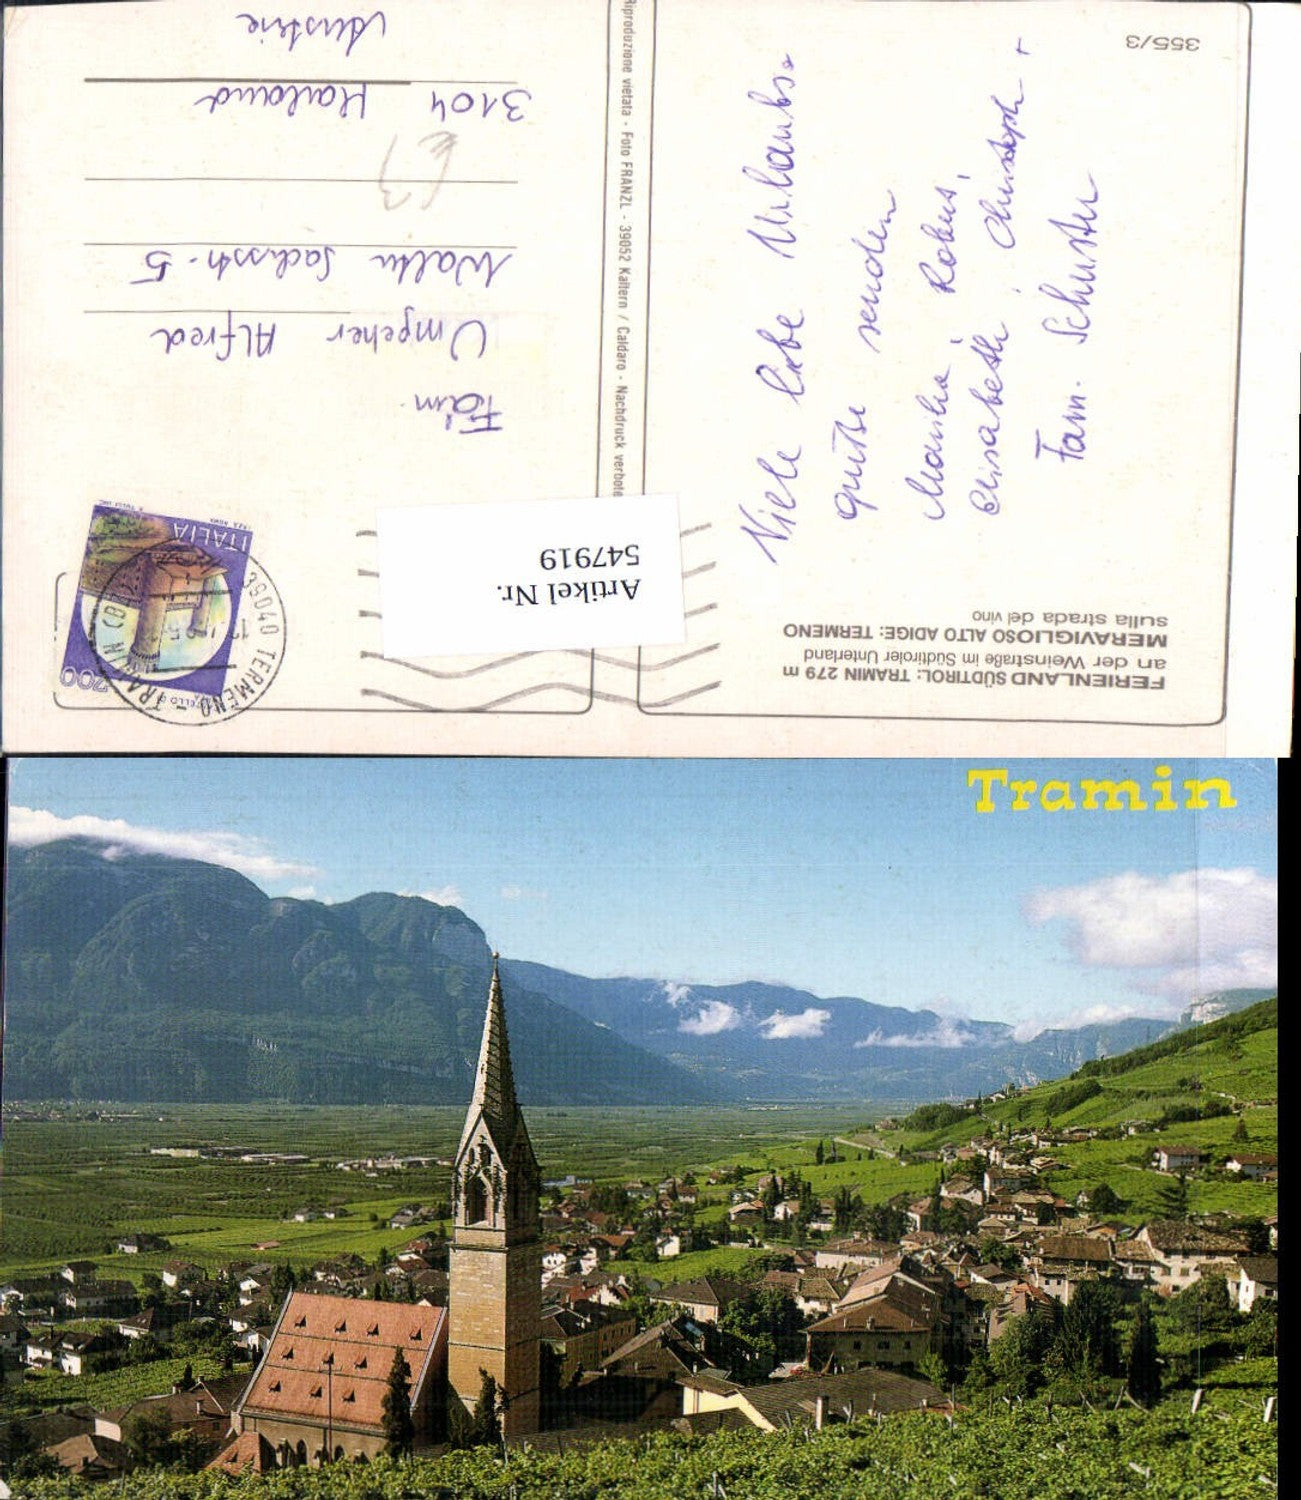 FERIENLAND SÜDTIROL: TRAMIN 279 m
an der Weinstraße im Südtiroler Unterland
MERAVIGLIOSO ALTO ADIGE: TERMENO
sulla strada del vino
Viele liebe Urlaubs-
grüße senden
Robert,
Elisabeth, Christoph +
Fam. Schuster
355/3
Riproduzione vietata - Foto FRANZL - 39052 Kaltern / Caldaro - Nachdruck verbote
Artikel Nr.
547919
ITALIA
700
39040 TERMENO - TRAMIN (BZ)
Fam.
Umgeher Alfred
Sachsstr. 5
3104 Harland
Austria
Tramin